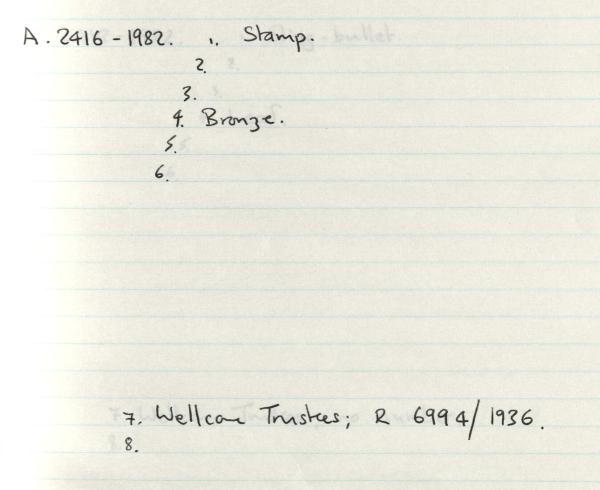 A. 2416-1982. 1. Stamp.
2.
3.
4. Bronze.
5.
6.
7. Wellcome Trustees; R 6994/1936.
8.